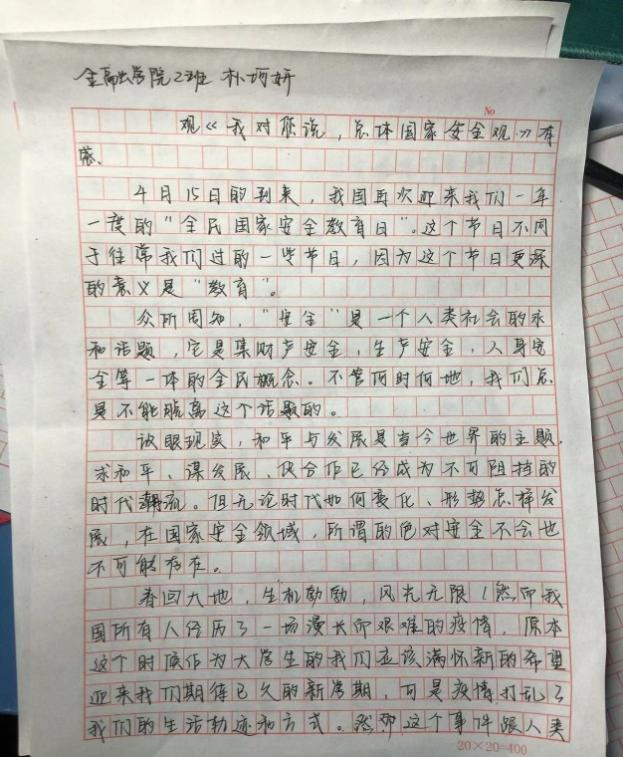 金融学院2班 朴
No
观《我对你说，总体国家安全观》有
感
4月15日的到来，我国再次迎来我们一年
一度的“全民国家安全教育日”。这个节日不同
于往常我们过的一些节日，因为这个节日更深
的意义是“教育”。
众所周知，“安全”是一个人类社会的永
和话题，它是集财产安全，生产安全，人身安
全等一体的全民概念。不管何时何地，我们总
是不能脱离这个话题的。
放眼现实，和平与发展是当今世界的主题，
求和平、谋发展、促合作已经成为不可阻挡的
时代潮流。但无论时代如何变化、形势怎样发
展，在国家安全领域，所谓的绝对安全不会也
不可能存在。
春回大地，生机勃勃，风光无限！然即我
国所有人经历了一场漫长即艰难的疫情，原本
这个时候作为大学生的我们应该满怀新的希望
迎来我们期待已久的新学期，可是疫情打乱了
我们的生活轨迹和方式。然那这个事件跟人类
20×20=400